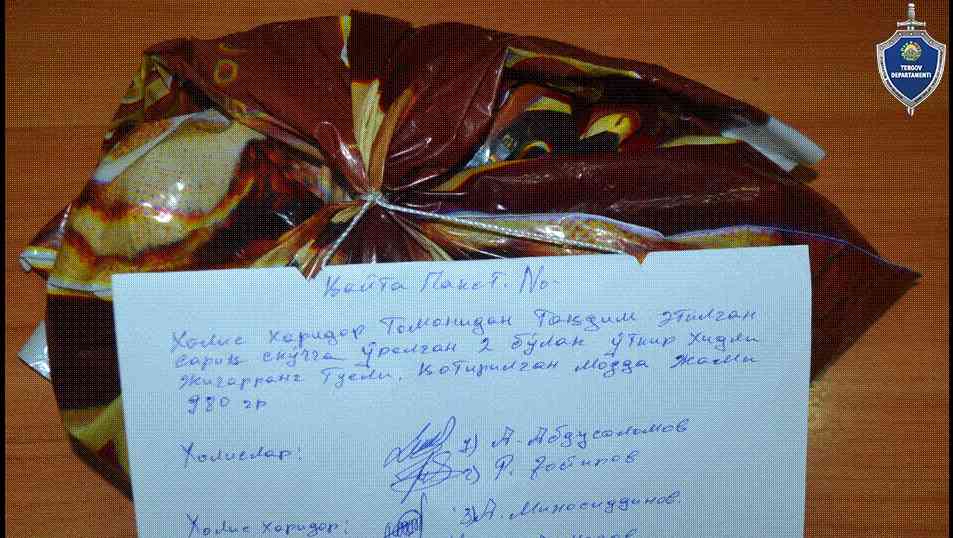 TERGOV
DEPARTAMENTI
Қайта Пакет. No.
Холис харидор Томонидан Тақдим этилган
сариқ скучга ўралган 2 бўлак ўткир хидли
жигарранг Тусли, қотирилган модда жами
980 гр
Холислар:
1) А. Абдусаломов
2) Р.
Холис харидор:
3) А.